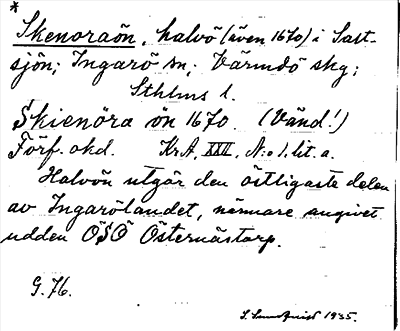 *
Skenoraön, halvö (även 1670) i Sast-
sjön; Ingarö sn; Värmdö skg;
Sthlms l.
Skienöra ön 1670. (Vänd!)
Förf. okd. KrA, XXII, N:o 1. lit. a.
Halvön utgör den östligaste delen
av Ingarölandet, närmare angivet
udden ÖSÖ Östernästorp.
G. 76.
1935.